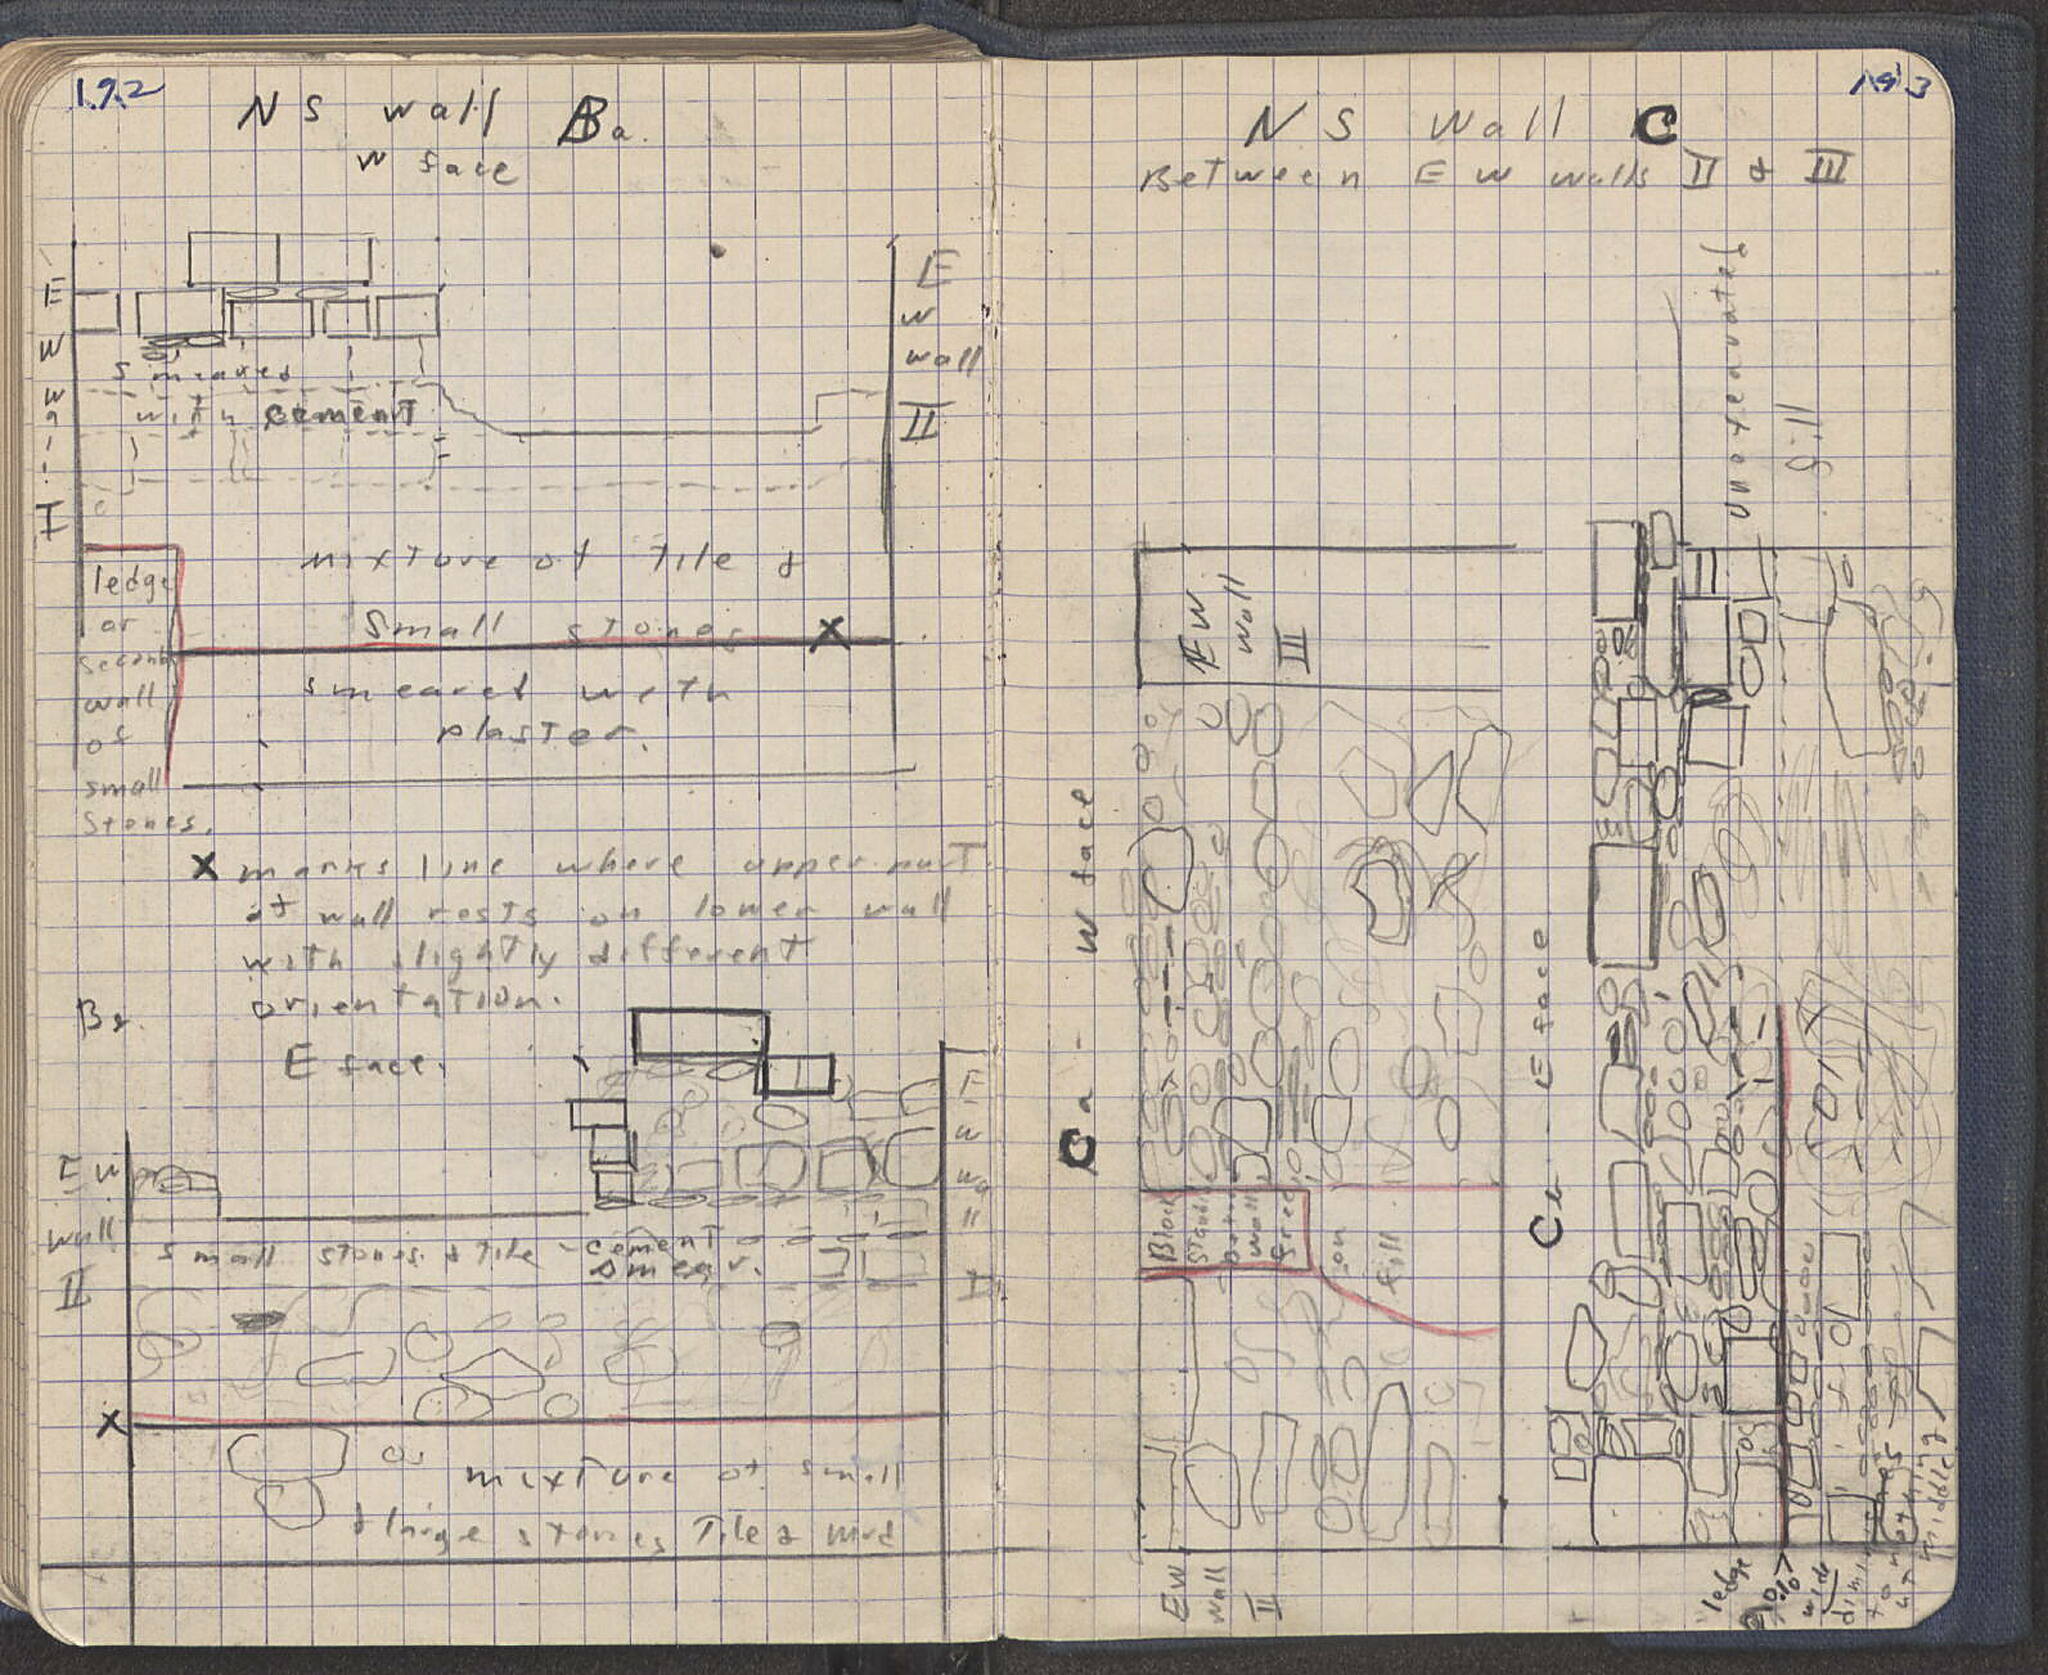 192
NS wall Ba.
W face
E W Wall I
E
W
wall
II
smeared
with cement
mixture of tile &
small stones
X
ledge
or
second
wall
of
small
stones.
smeared with
plaster.
X marks line where upper part
of wall rests on lower wall
with slightly different
orientation.
E face.
EW
wall
II
E
W
wa
ll
I
small stones & tile - cement
smear.
X
mixture of small
& large stones Tile & mud
193
NS Wall C
Between EW walls II & III
unexcavated
fill
EW
Wall
III
Ca - W face
Block
wall
on
fill
EW
Wall
II
Cb - E face
ledge
wide
to nothing
middle